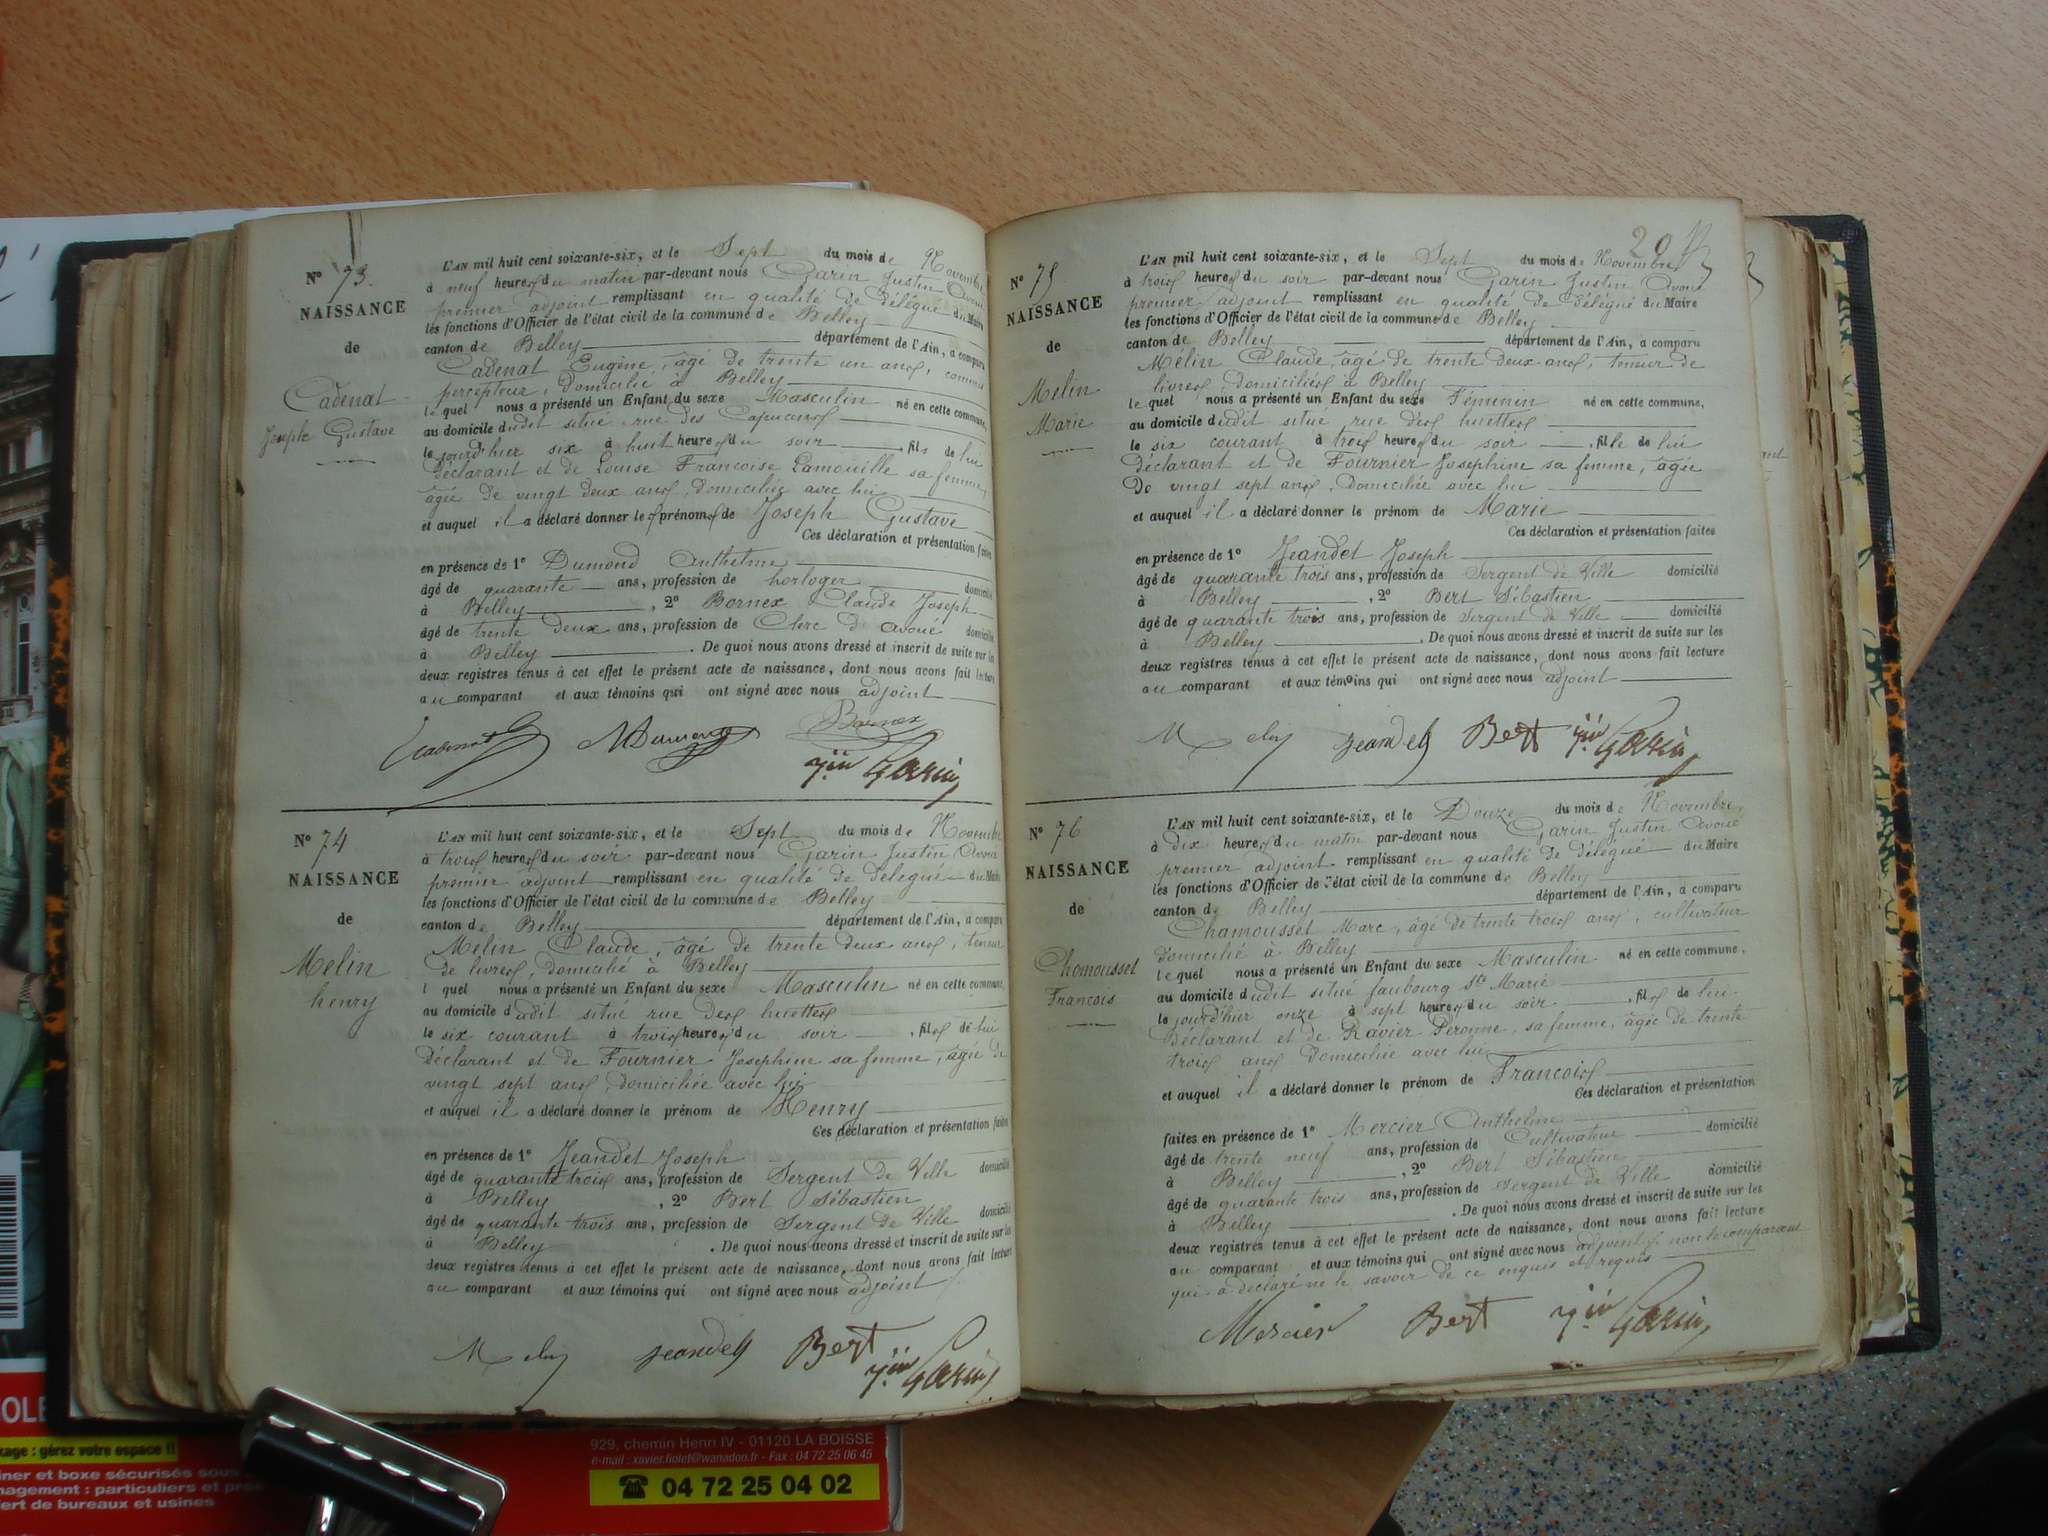 N° 73.
NAISSANCE
de
Cadenat
Joseph Gustave
L'AN mil huit cent soixante-six, et le Sept du mois de Novembre
à neuf heures du matin par-devant nous Garin Justin Avoué
premier adjoint remplissant en qualité de délégué du Maire
les fonctions d'Officier de l'état civil de la commune de Belley
canton de Belley département de l'Ain, a comparu
Cadenat Eugène, âgé de trente un ans, commis
percepteur, domicilié à Belley
le quel nous a présenté un Enfant du sexe Masculin né en cette commune,
au domicile dudit situé rue des Capucins
le jourd'hier six à huit heures du soir, fils de lui
déclarant et de Louise Françoise Lamouille sa femme,
âgée de vingt deux ans, domiciliée avec lui
et auquel il a déclaré donner les prénoms de Joseph Gustave
Ces déclaration et présentation faites
en présence de 1° Dumond Anthelme
âgé de quarante ans, profession de horloger domicilié
à Belley, 2° Bornex Claude Joseph
âgé de trente deux ans, profession de Clerc d'avoué domicilié
à Belley. De quoi nous avons dressé et inscrit de suite sur les
deux registres tenus à cet effet le présent acte de naissance, dont nous avons fait lecture
au comparant et aux témoins qui ont signé avec nous adjoint
Cadenat Dumond Bornex
Jin Garin
N° 74
NAISSANCE
de
Melin
henry
L'AN mil huit cent soixante-six, et le Sept du mois de Novembre
à trois heures du soir par-devant nous Garin Justin Avoué
premier adjoint remplissant en qualité de délégué du Maire
les fonctions d'Officier de l'état civil de la commune de Belley
canton de Belley département de l'Ain, a comparu
Melin Claude, âgé de trente deux ans, teneur
de livres, domicilié à Belley
l quel nous a présenté un Enfant du sexe Masculin né en cette commune,
au domicile dudit situé rue des huttes
le six courant à trois heures du soir, fils de lui
déclarant et de Fournier Josephine sa femme, âgée de
vingt sept ans, domiciliée avec lui
et auquel il a déclaré donner le prénom de Henry
Ces déclaration et présentation faites
en présence de 1° Jeandet Joseph
âgé de quarante trois ans, profession de Sergent de Ville domicilié
à Belley, 2° Bert Sébastien
âgé de quarante trois ans, profession de Sergent de Ville domicilié
à Belley. De quoi nous avons dressé et inscrit de suite sur les
deux registres tenus à cet effet le présent acte de naissance, dont nous avons fait lecture
au comparant et aux témoins qui ont signé avec nous adjoint
Melin Jeandet Bert
Jin Garin
20
N° 75
NAISSANCE
de
Melin
Marie
L'AN mil huit cent soixante-six, et le Sept du mois de Novembre
à trois heures du soir par-devant nous Garin Justin Avoué
premier adjoint remplissant en qualité de délégué du Maire
les fonctions d'Officier de l'état civil de la commune de Belley
canton de Belley département de l'Ain, a comparu
Melin Claude, âgé de trente deux ans, teneur de
livres, domiciliés à Belley
le quel nous a présenté un Enfant du sexe Féminin né en cette commune,
au domicile dudit situé rue des huttes
le six courant à trois heures du soir, fille de lui
déclarant et de Fournier Josephine sa femme, âgée
de vingt sept ans, domiciliée avec lui
et auquel il a déclaré donner le prénom de Marie
Ces déclaration et présentation faites
en présence de 1° Jeandet Joseph
âgé de quarante trois ans, profession de Sergent de Ville domicilié
à Belley, 2° Bert Sébastien
âgé de quarante trois ans, profession de Sergent de Ville domicilié
à Belley. De quoi nous avons dressé et inscrit de suite sur les
deux registres tenus à cet effet le présent acte de naissance, dont nous avons fait lecture
au comparant et aux témoins qui ont signé avec nous adjoint
Melin Jeandet Bert Jin Garin
N° 76
NAISSANCE
de
Chamousset
François
L'AN mil huit cent soixante-six, et le Douze du mois de Novembre,
à dix heures du matin par-devant nous Garin Justin Avoué
premier adjoint remplissant en qualité de délégué du Maire
les fonctions d'Officier de l'état civil de la commune de Belley
canton de Belley département de l'Ain, a comparu
Chamousset Marc, âgé de trente trois ans, cultivateur
domicilié à Belley
le quel nous a présenté un Enfant du sexe Masculin né en cette commune,
au domicile dudit situé faubourg Ste Marie
le jourd'hier onze à sept heures du soir, fils de lui
Déclarant et de Ravier Peronne, sa femme, âgée de trente
trois ans domiciliée avec lui
et auquel il a déclaré donner le prénom de François
Ces déclaration et présentation
faites en présence de 1° Mercier Anthelme
âgé de trente neuf ans, profession de Cultivateur domicilié
à Belley, 2° Bert Sébastien
âgé de quarante trois ans, profession de Sergent de Ville domicilié
à Belley. De quoi nous avons dressé et inscrit de suite sur les
deux registres tenus à cet effet le présent acte de naissance, dont nous avons fait lecture
au comparant et aux témoins qui ont signé avec nous adjoint non le comparant
qui a déclaré ne le savoir de ce enquis et requis
Mercier Bert Jin Garin
kage : gérez votre espace !!
iner et boxe sécurisés sous
nagement : particuliers et pro
fert de bureaux et usines
929, chemin Henri IV - 01120 LA BOISSE
e-mail : xavier.fiolet@wanadoo.fr - Fax : 04 72 25 06 45
☎ 04 72 25 04 02